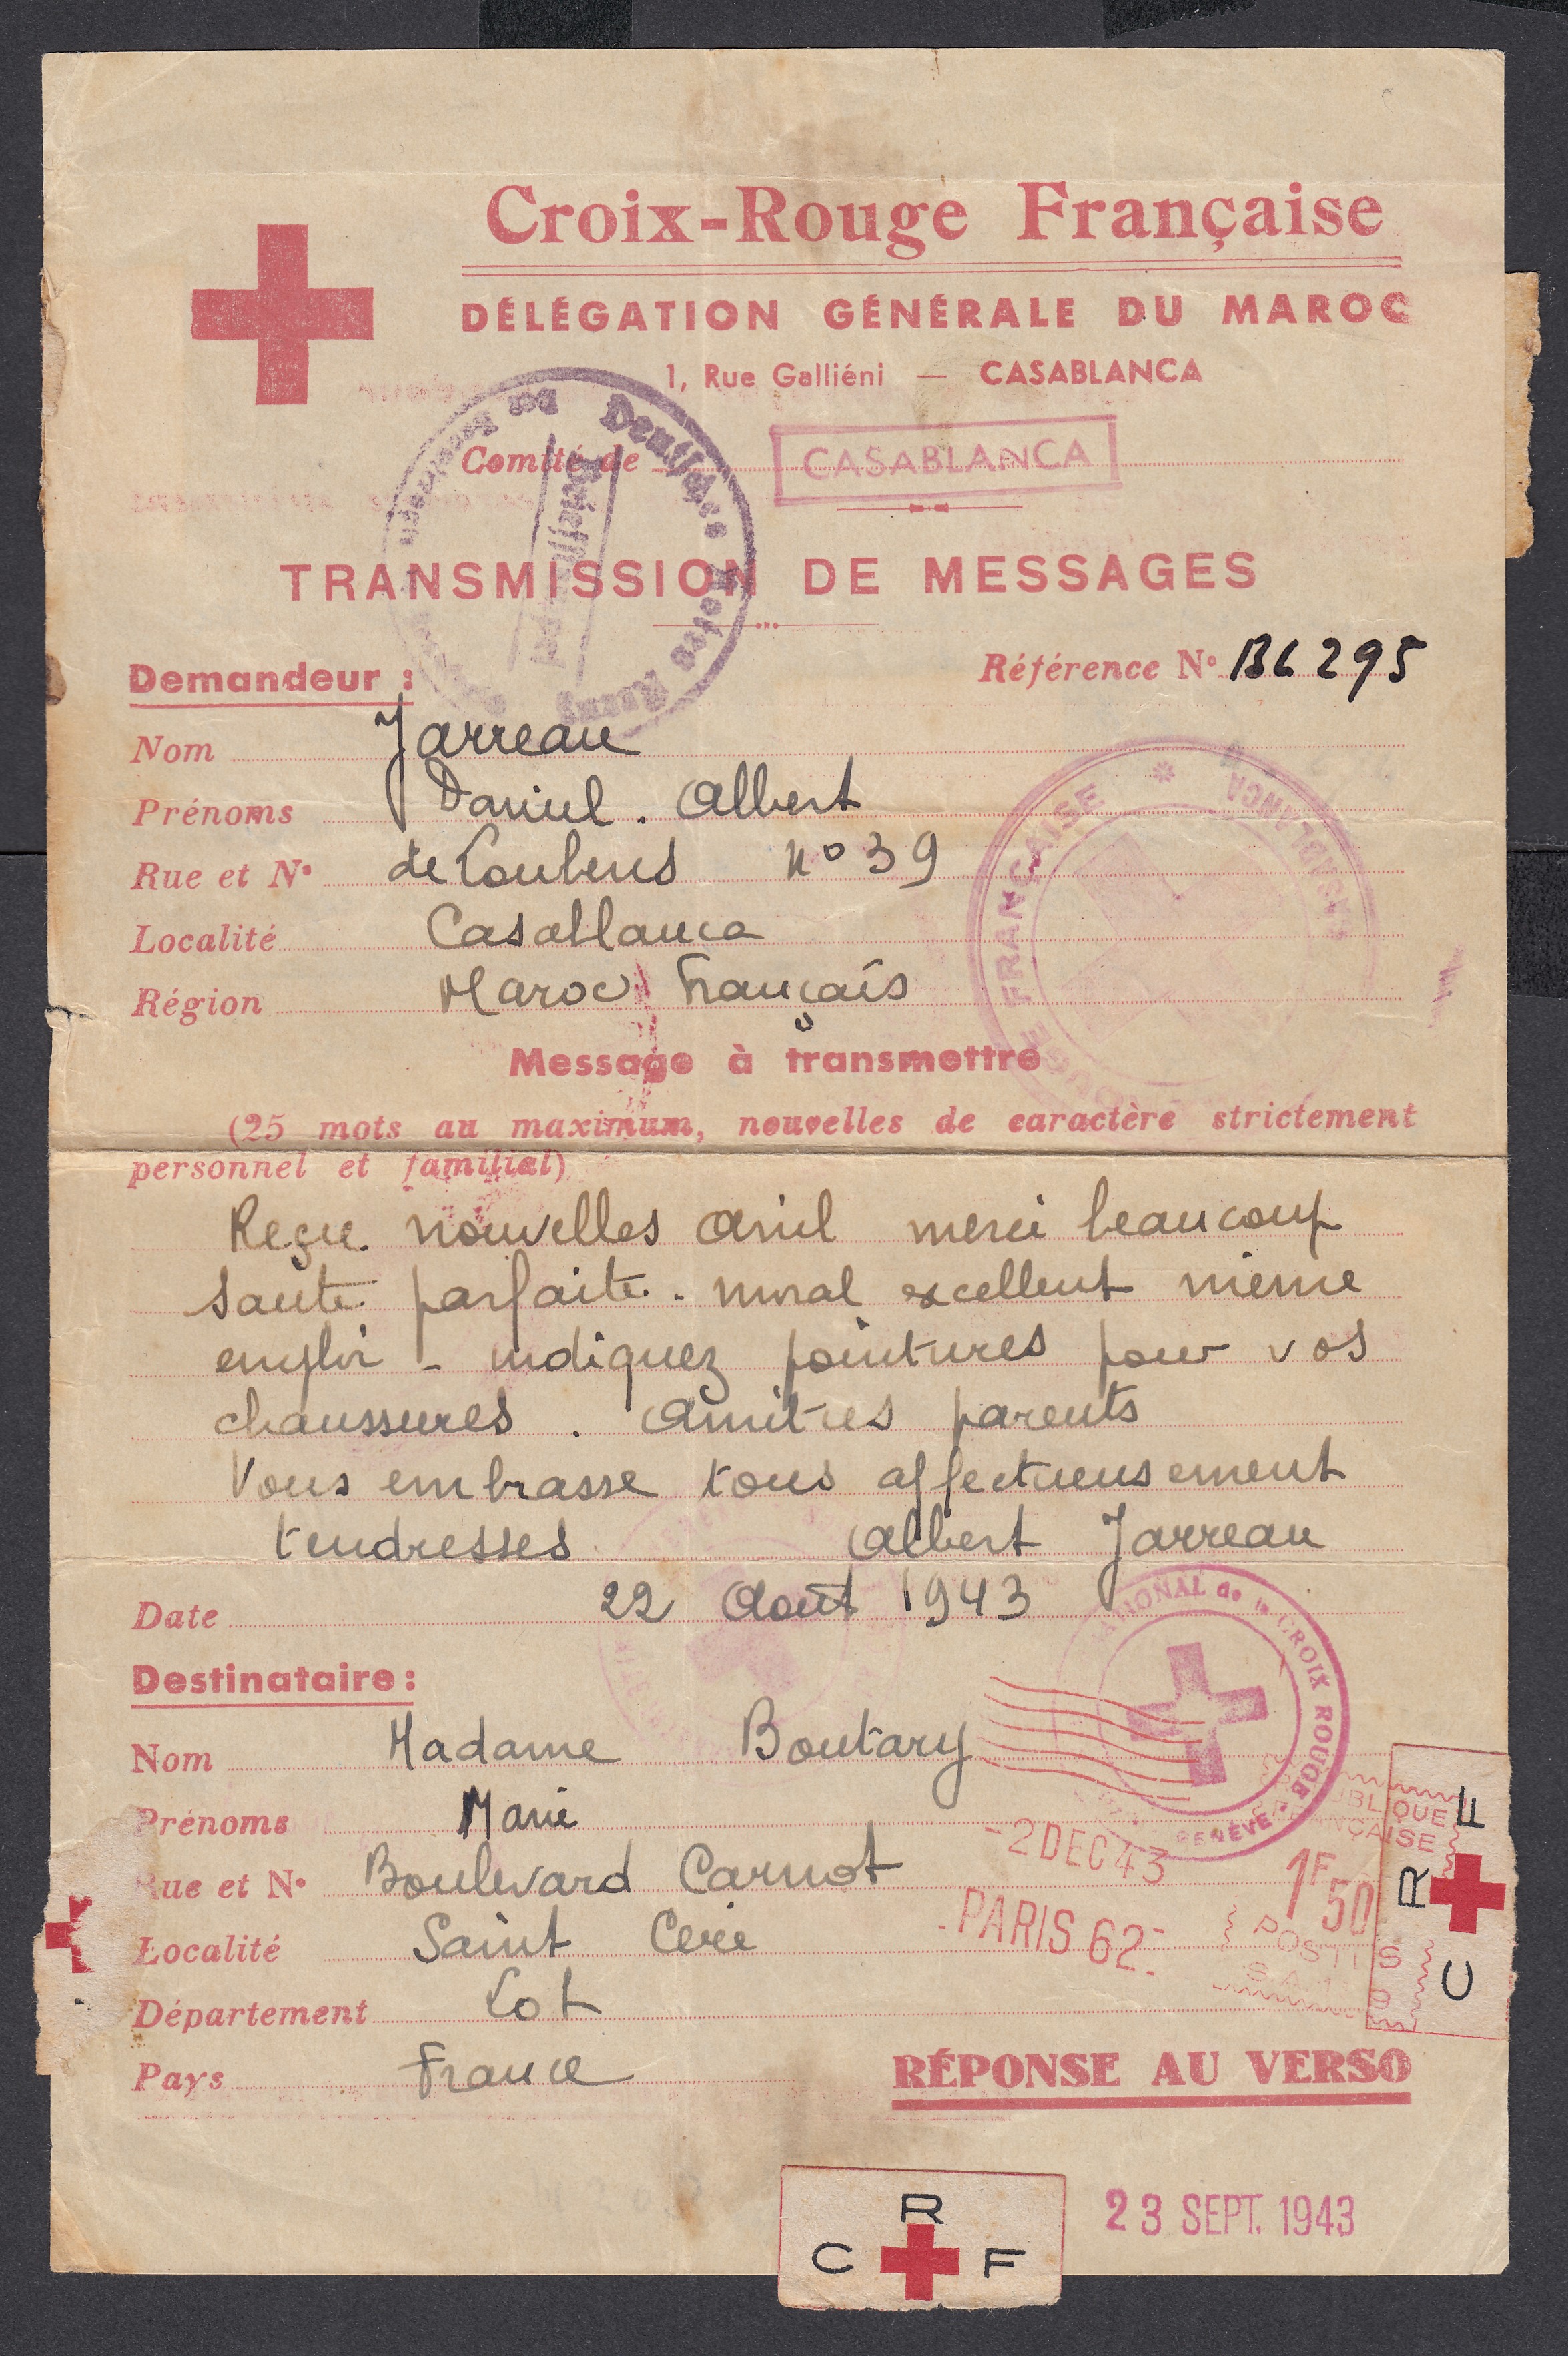 Croix-Rouge Française
DÉLÉGATION GÉNÉRALE DU MAROC
1, Rue Galliéni — CASABLANCA
Comité de CASABLANCA
Deutsches Rotes Kreuz
TRANSMISSION DE MESSAGES
Demandeur :
Référence N° BL 295
Nom Jarreau
Prénoms Daniel. Albert
Rue et N° de Loubens N° 39
Localité Casablanca
Région Maroc Français
FRANÇAISE * CASABLANCA
Message à transmettre
(25 mots au maximum, nouvelles de caractère strictement
personnel et familial)
Reçu. nouvelles Avril merci beaucoup
Santé parfaite. moral excellent même
emploi - indiquez pointures pour vos
chaussures. Amitiés parents
Vous embrasse tous affectueusement
tendresses Albert Jarreau
Date 22 Août 1943
Destinataire :
NATIONAL de la CROIX ROUGE - GENÈVE -
Nom Madame Boutary
Prénoms Marie
Rue et N° Boulevard Carnot
Localité Saint Céré
Département Lot
Pays France
-2 DEC 43
PARIS 62
RÉPUBLIQUE
FRANÇAISE
1F50
POSTES
C R F
RÉPONSE AU VERSO
C R F
23 SEPT. 1943